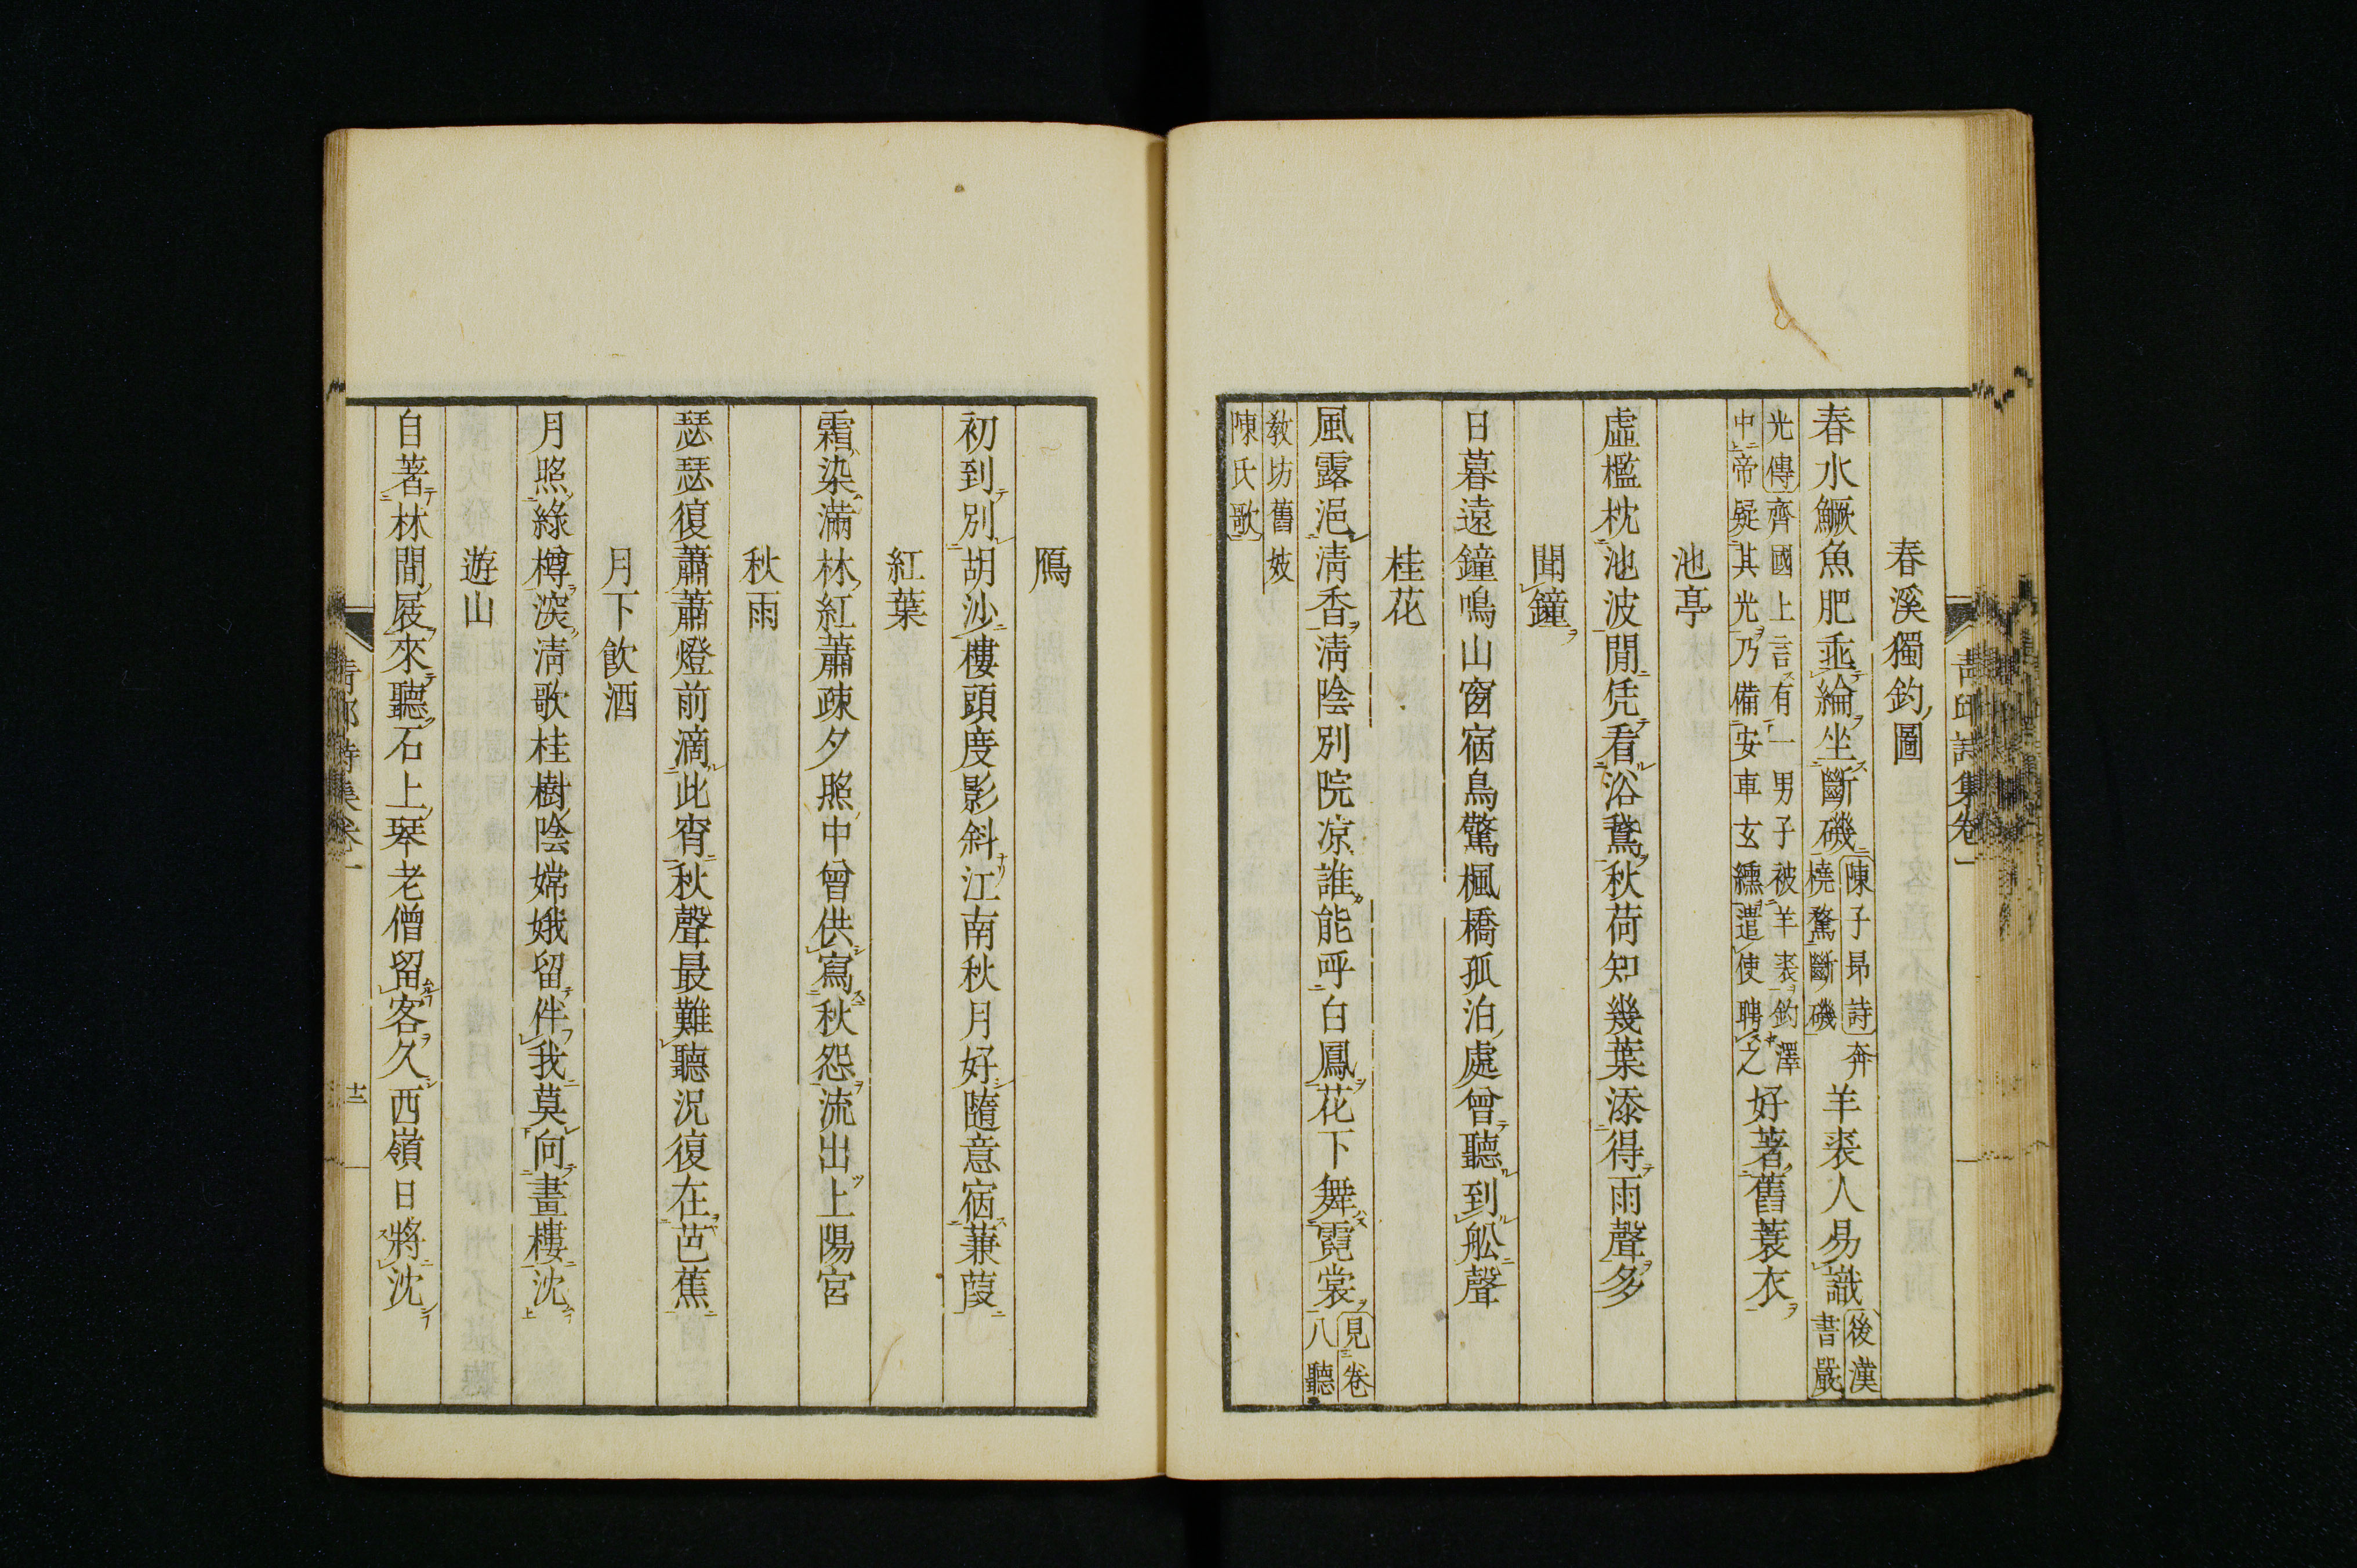 青邱詩集卷一
春溪獨釣圖
春水鱖魚肥垂綸坐斷磯陳子昻詩奔橈騖斷磯羊裘人易識後漢書嚴
光傳齊國上言有一男子被羊裘釣澤中帝疑其光乃備安車玄纁遣使聘之好著舊蓑衣
池亭
虛檻枕池波閒凭看浴鵞秋荷知幾葉添得雨聲多
聞鐘
日暮遠鐘鳴山窗宿鳥驚楓橋孤泊處曾聽到舩聲
桂花
風露浥淸香淸陰別院凉誰能呼白鳳花下舞霓裳見卷八聽
教坊舊妓陳氏歌
鴈
初到別胡沙樓頭度影斜江南秋月好隨意宿蒹葭
紅葉
霜染滿林紅蕭疎夕照中曾供寫秋怨流出上陽宮
秋雨
瑟瑟復蕭蕭燈前滴此宵秋聲最難聽況復在芭蕉
月下飮酒
月照綠樽深淸歌桂樹陰嫦娥留伴我莫向畫樓沈
遊山
自著林間屐來聽石上琴老僧留客久西嶺日將沈
靑邱詩集卷一
十二